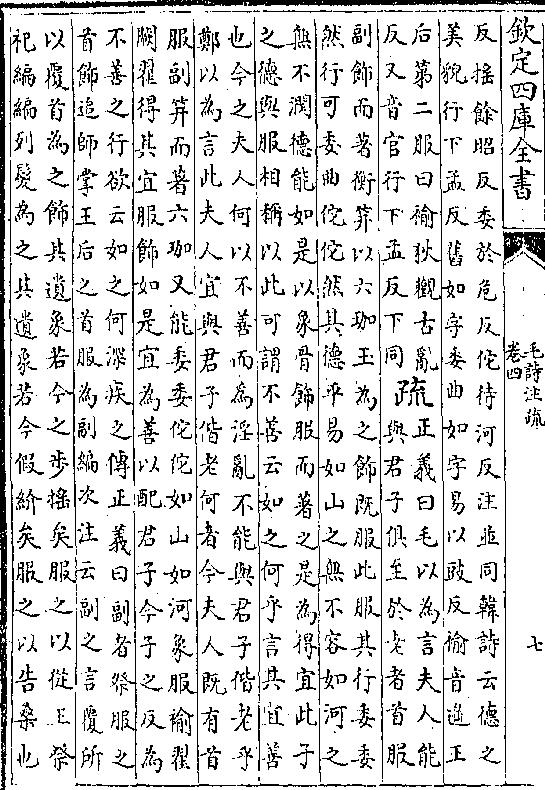 欽定四庫全書
毛詩注疏
卷四
七
反揺餘昭反委於危反佗待河反注並同韓詩云德之
美貌行下孟反舊如字委曲如字易以豉反揄音遥王
后第二服曰褕狄觀古亂
反又音官行下孟反下同疏正義曰毛以為言夫人能
與君子俱至於老者首服
副飾而著衡筓以六珈玉為之飾既服此服其行委委
然行可委曲佗佗然其德平易如山之無不容如河之
無不潤德能如是以象骨飾服而著之是為得宜此子
之德與服相稱以此可謂不善云如之何乎言其宜善
也今之夫人何以不善而為淫亂不能與君子偕老乎
鄭以為言此夫人宜與君子偕老何者今夫人既有首
服副筓而著六珈又能委委佗佗如山如河象服褕翟
闕翟得其宜服飾如是宜為善以配君子今子之反為
不善之行欲云如之何深疾之傳正義曰副者祭服之
首飾追師掌王后之首服為副編次注云副之言覆所
以覆首為之飾其遺象若今之步揺矣服之以從王祭
祀編編列髮為之其遺象若今假紒矣服之以告桑也